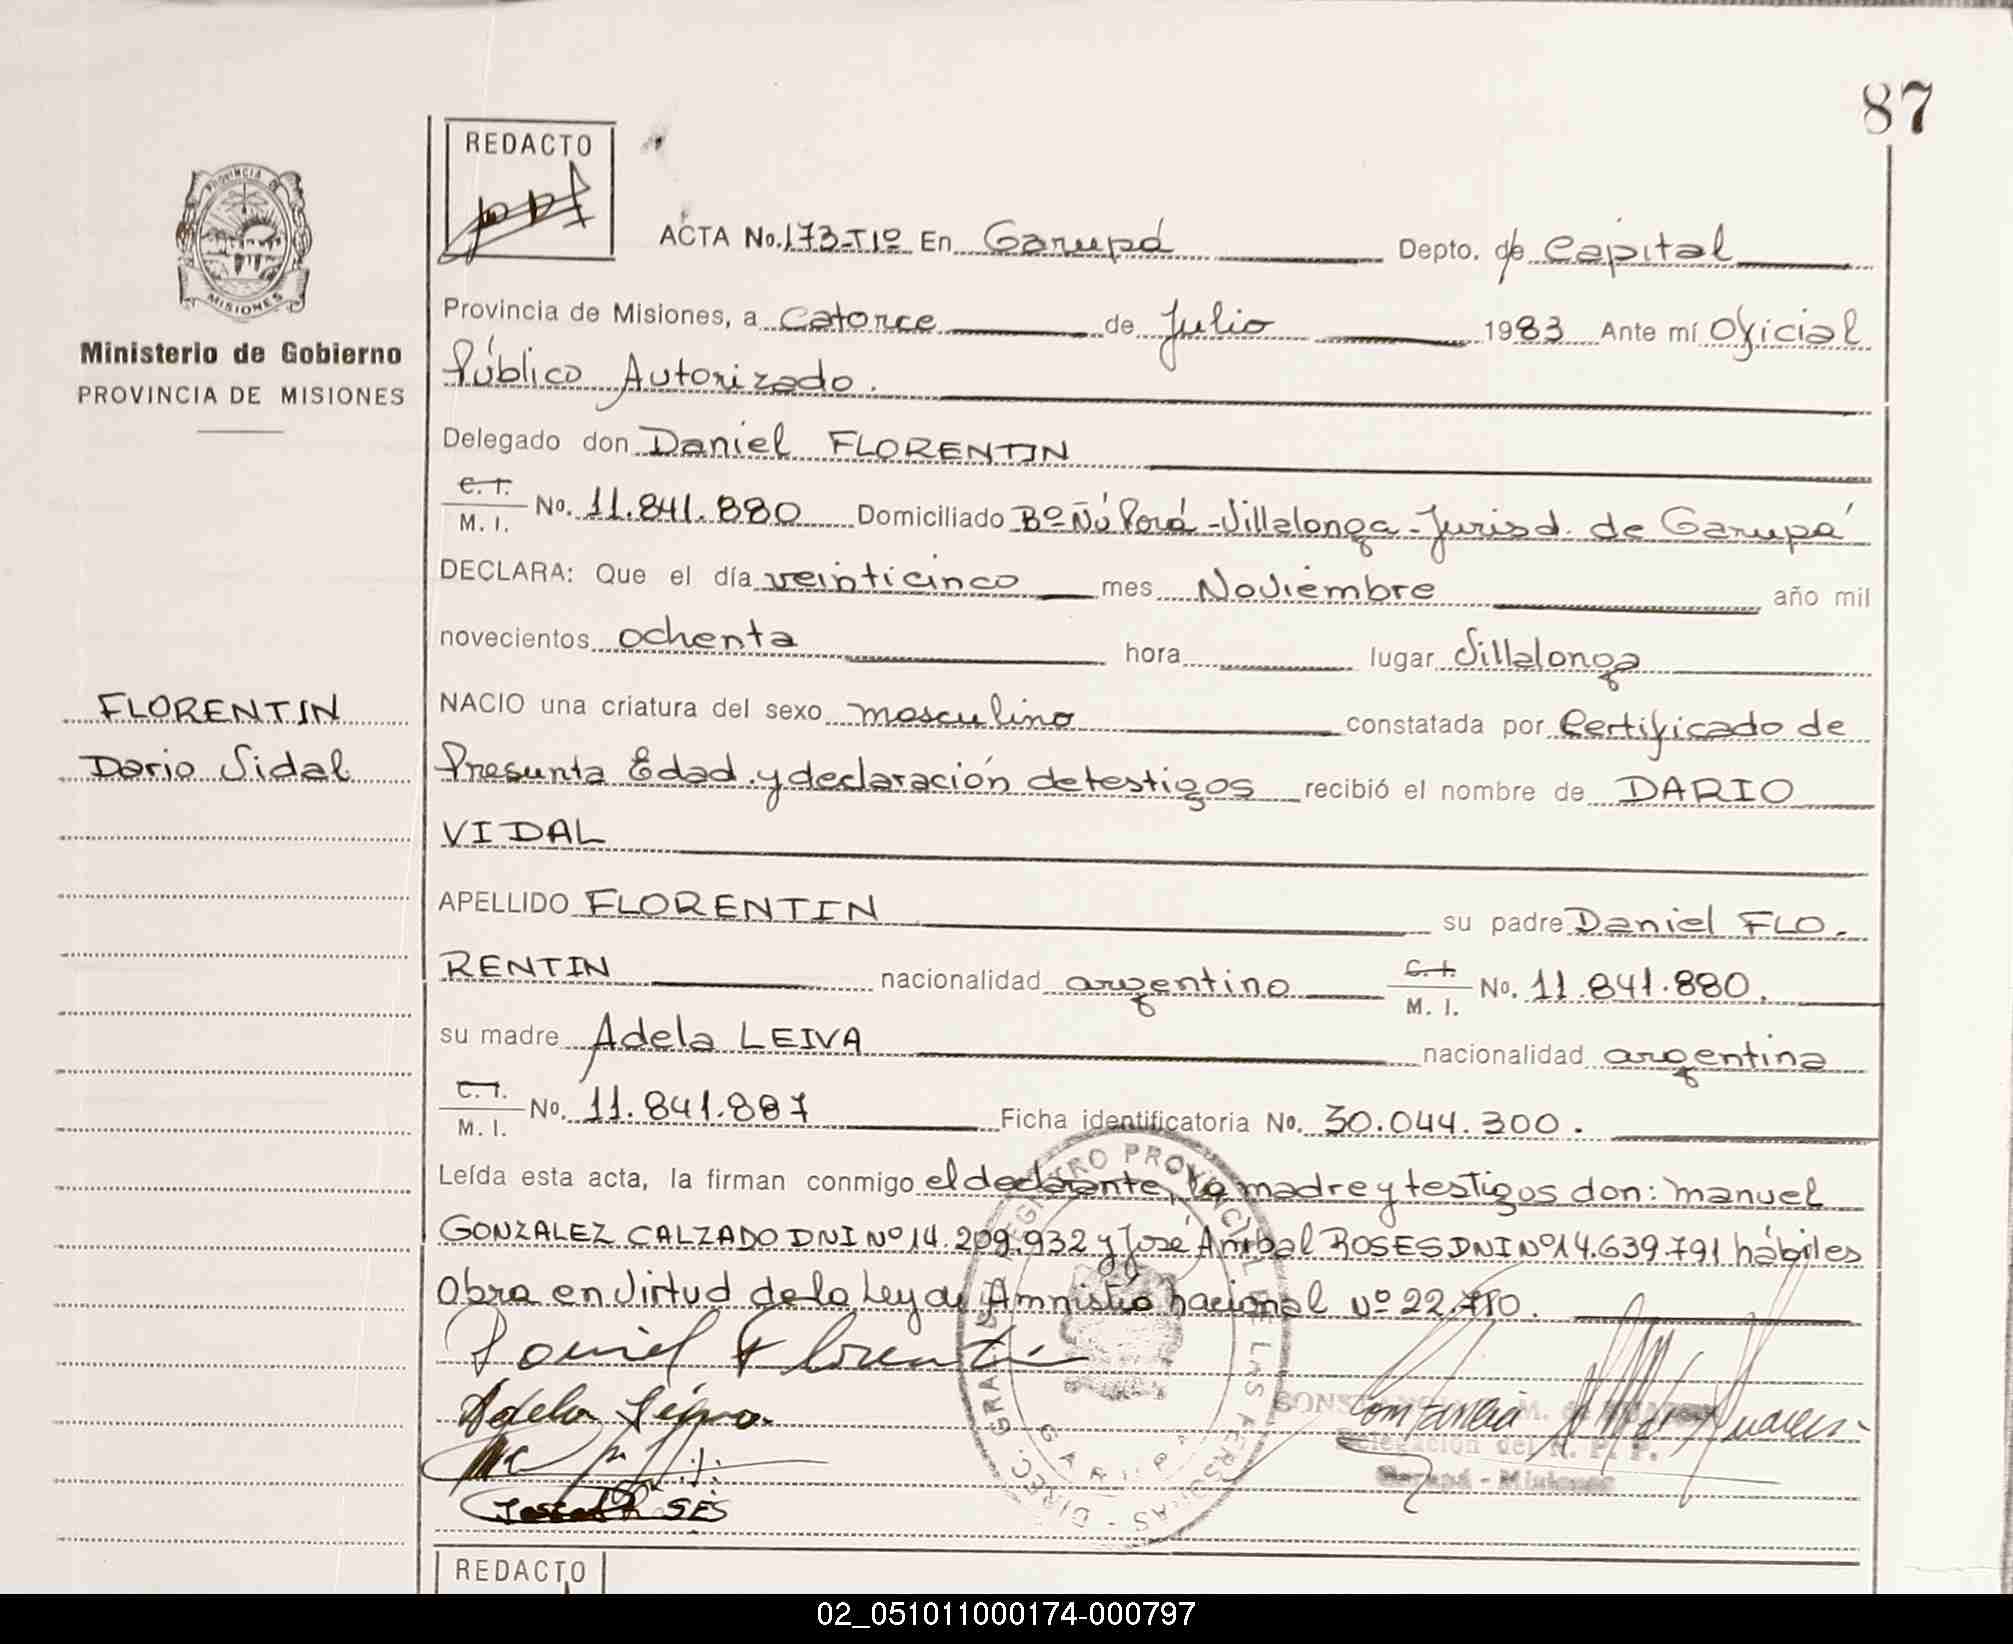 87
REDACTO
PROVINCIA DE
MISIONES
Ministerio de Gobierno
PROVINCIA DE MISIONES
ACTA No. 173-T1º En Garupá Depto. de Capital
Provincia de Misiones, a Catorce de Julio 1983 Ante mí Oficial
Público Autorizado.
Delegado don Daniel FLORENTIN
C. I. M. I. No. 11.841.880 Domiciliado Bº Ñú Porá - Villalonga - Jurisd. de Garupá
DECLARA: Que el día veinticinco mes Noviembre año mil
novecientos ochenta hora lugar Villalonga
FLORENTIN
Dario Vidal
NACIO una criatura del sexo masculino constatada por Certificado de
Presunta Edad y declaración de testigos recibió el nombre de DARIO
VIDAL
APELLIDO FLORENTIN su padre Daniel FLO-
RENTIN nacionalidad argentino C. I. M. I. No. 11.841.880.
su madre Adela LEIVA nacionalidad argentina
C. I. M. I. No. 11.841.887 Ficha identificatoria No. 30.044.300.
Leída esta acta, la firman conmigo el declarante, la madre y testigos don: Manuel
GONZALEZ CALZADO DNI Nº 14.209.932 y José Anibal ROSES DNI Nº 14.639.791 hábiles
Obra en Virtud de la Ley de Amnistia nacional Nº 22.710.
Daniel Florentin
Adela Leiva
REGISTRO PROVINCIAL DE LAS PERSONAS - DIREC. GRAL.
GARUPA
Delegación del R. P. P.
Garupá - Misiones
REDACTO
02_051011000174-000797